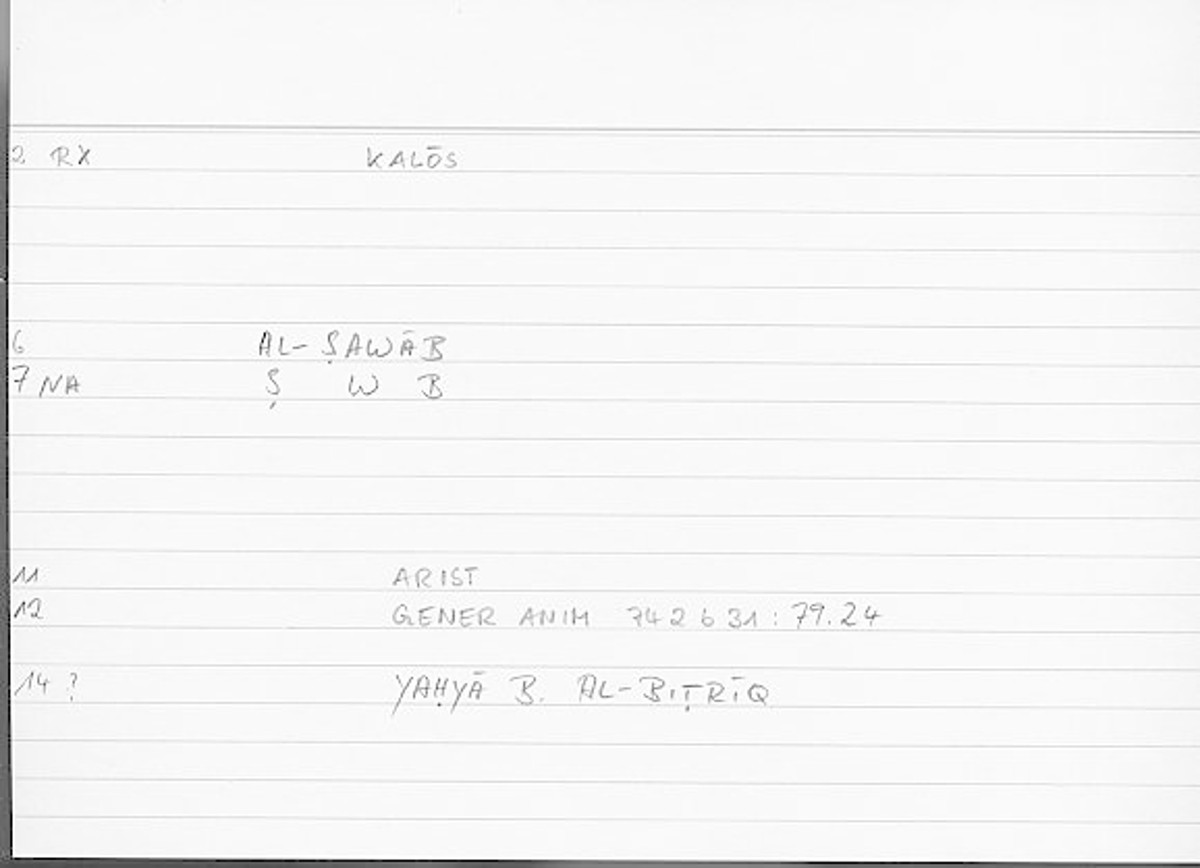 2 RX KALŌS
6 AL-ṢAWĀB
7 NA Ṣ W B
11 ARIST
12 GENER ANIM 742 b 31 : 79.24
14 ? YAḤYĀ B. AL-BIṬRĪQ